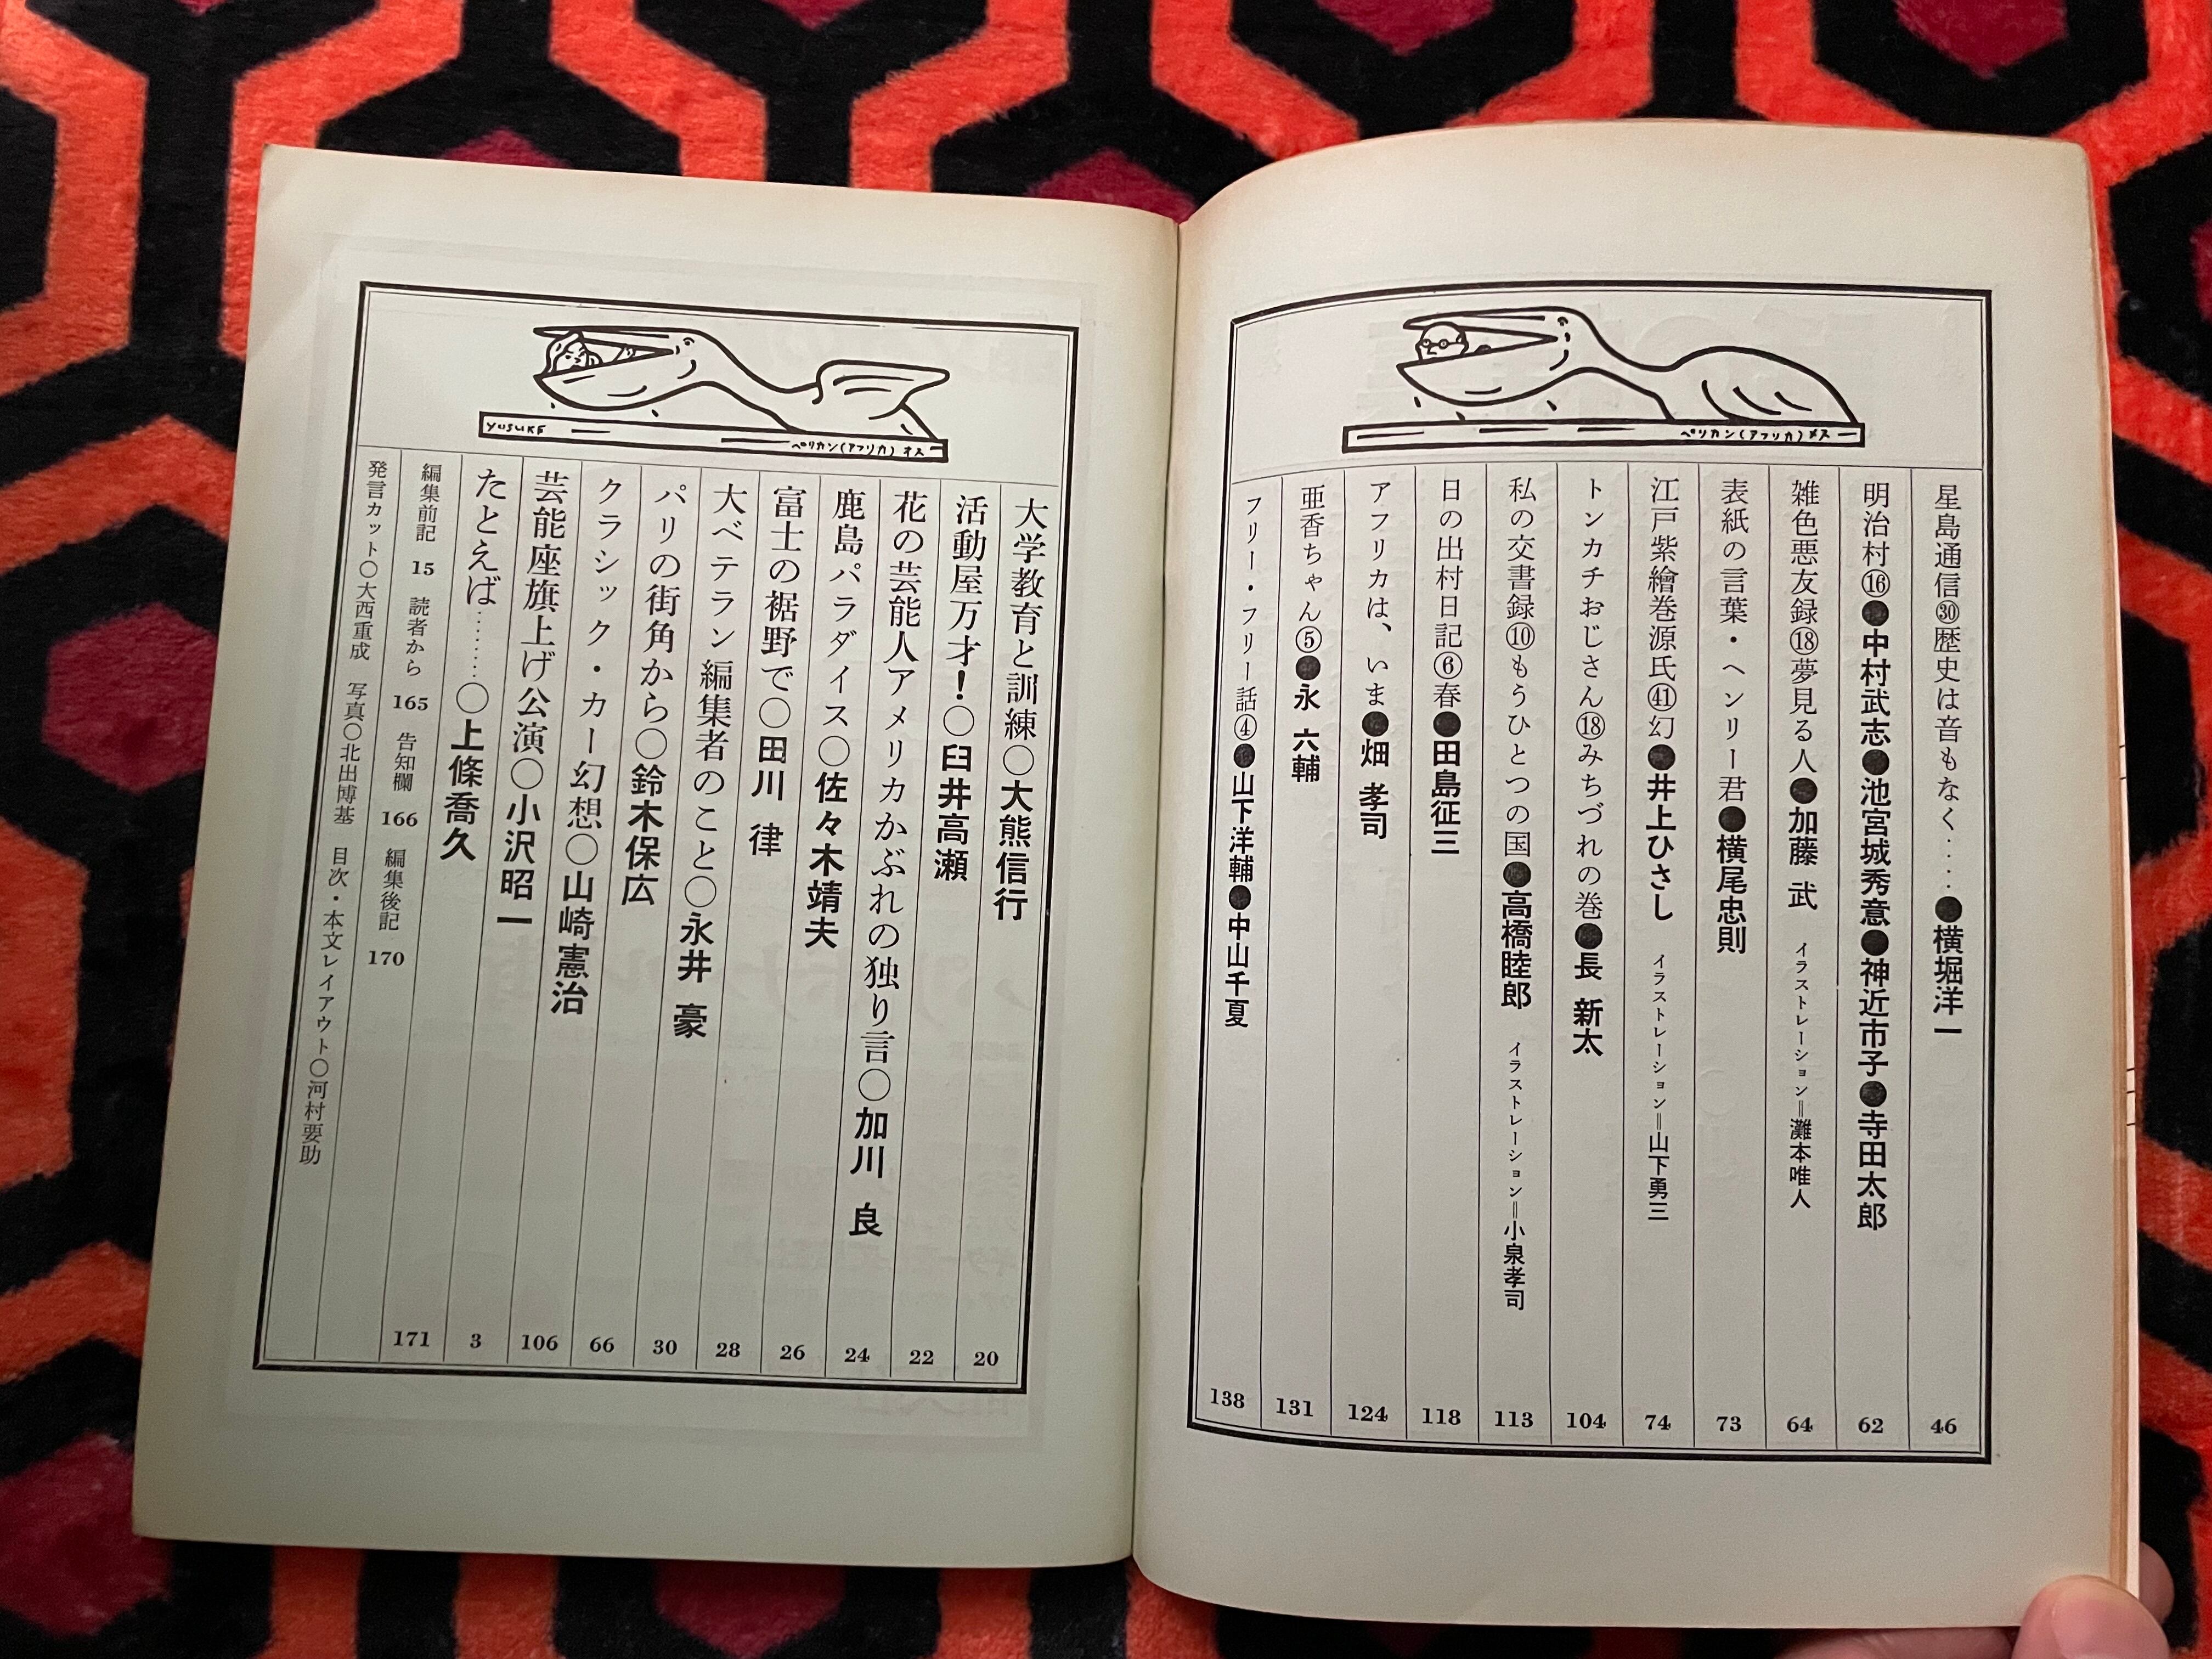 ペリカン(アフリカ)メス
星島通信㉚歴史は音もなく‥‥●横堀洋一 46
明治村⑯●中村武志●池宮城秀意●神近市子●寺田太郎 62
雑色悪友録⑱夢見る人●加藤 武 イラストレーション=灘本唯人 64
表紙の言葉・ヘンリー君●横尾忠則 73
江戸紫繪巻源氏㊶幻●井上ひさし イラストレーション=山下勇三 74
トンカチおじさん⑱みちづれの巻●長 新太 104
私の交書録⑩もうひとつの国●高橋睦郎 イラストレーション=小泉孝司 113
日の出村日記⑥春●田島征三 118
アフリカは、いま●畑 孝司 124
亜香ちゃん⑤●永 六輔 131
フリー・フリー話④●山下洋輔●中山千夏 138
YUSUKE
ペリカン(アフリカ)オス
大学教育と訓練○大熊信行 20
活動屋万才!○臼井高瀬 22
花の芸能人アメリカかぶれの独り言○加川 良 24
鹿島パラダイス○佐々木靖夫 26
富士の裾野で○田川 律 28
大ベテラン編集者のこと○永井 豪 30
パリの街角から○鈴木保広 66
クラシック・カー幻想○山崎憲治 106
芸能座旗上げ公演○小沢昭一 3
たとえば………○上條喬久 171
編集前記 15 読者から 165 告知欄 166 編集後記 170
発言カット○大西重成 写真○北出博基 目次・本文レイアウト○河村要助